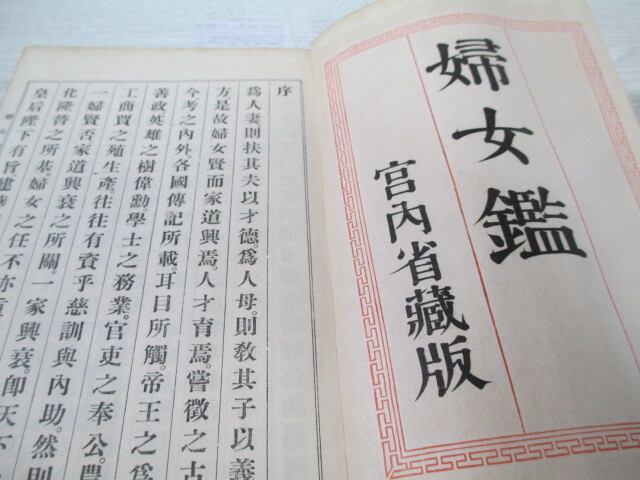 婦女鑑
宮內省藏版
序
爲人妻則扶其夫以才德。爲人母。則敎其子以義
方是故婦女賢而家道興焉。人才育焉。嘗徵之古
今考之內外各國傳記所載。耳目所觸。帝王之爲
善政英雄之樹偉勳學士之務業。官吏之奉公。農
工商賈之殖生產往往有資乎慈訓與內助。然則
一婦賢否家道興衰之所關。一家興衰。卽天下
化隆替之所基。婦女之任不亦重
皇后陛下有旨建